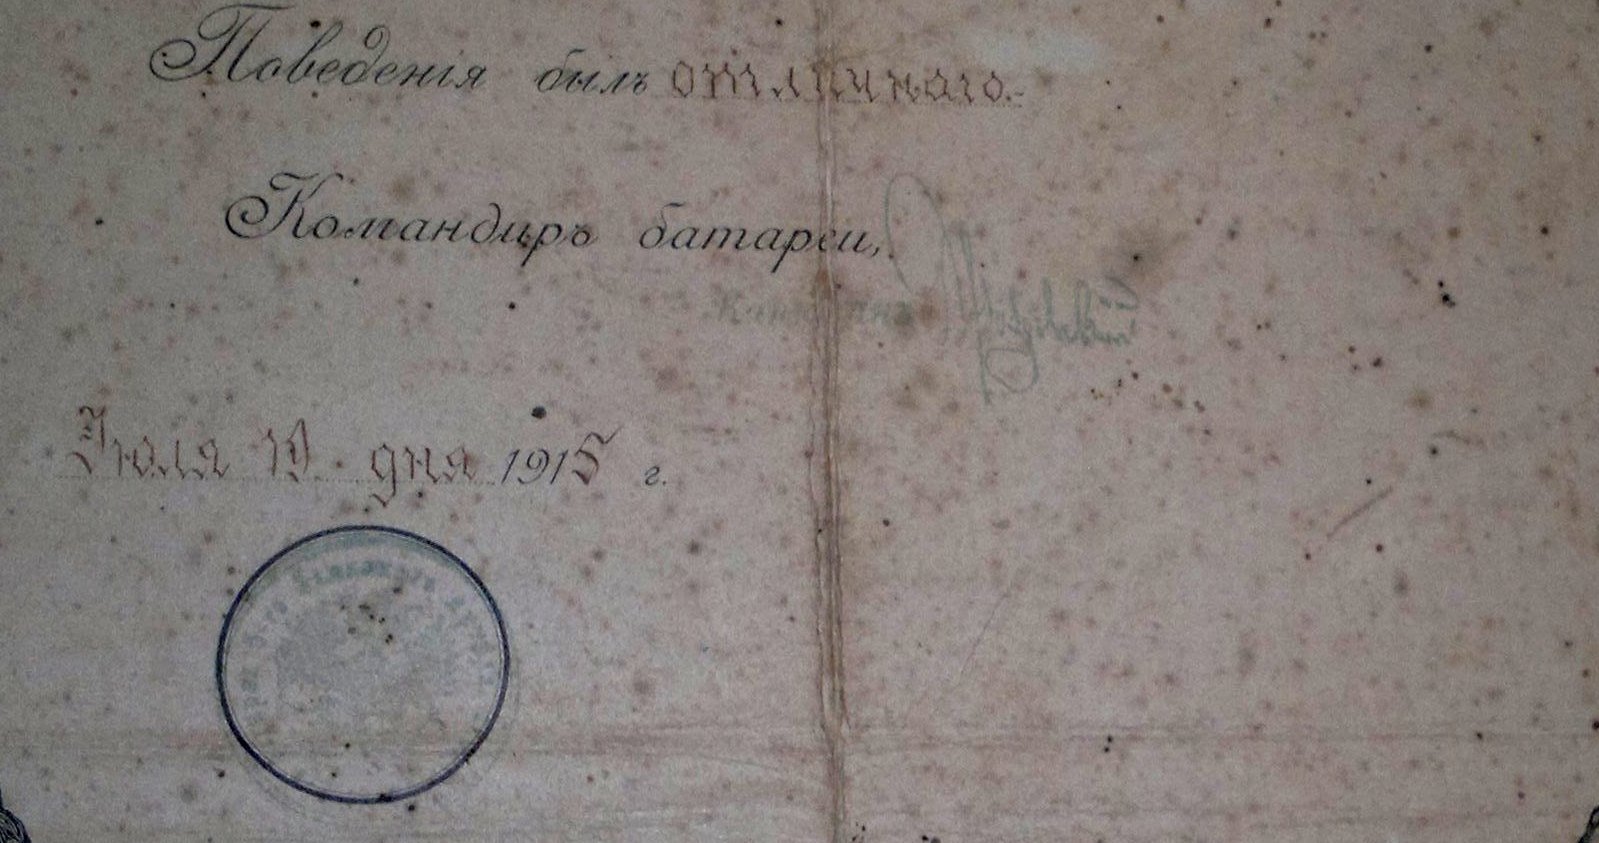 Поведенія былъ отличнаго.-
Командиръ батареи,
Капитанъ
Іюля 19 дня 1915 г.